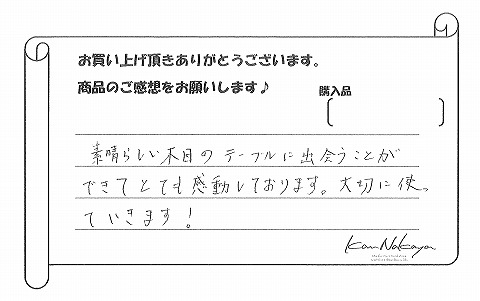 お買い上げ頂きありがとうございます。
商品のご感想をお願いします♪
購入品
素晴らしい木目のテーブルに出会うことが
できてとても感動しております。大切に使っ
ていきます!